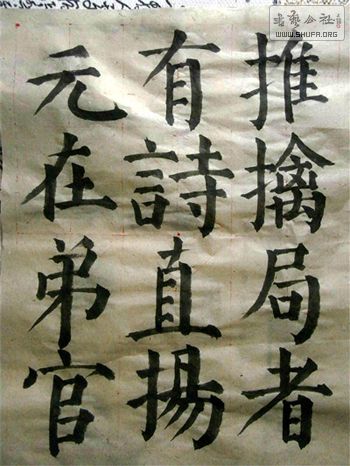 推擒局者
有詩直揚
元在弟官
書藝公社
WWW.SHUFA.ORG